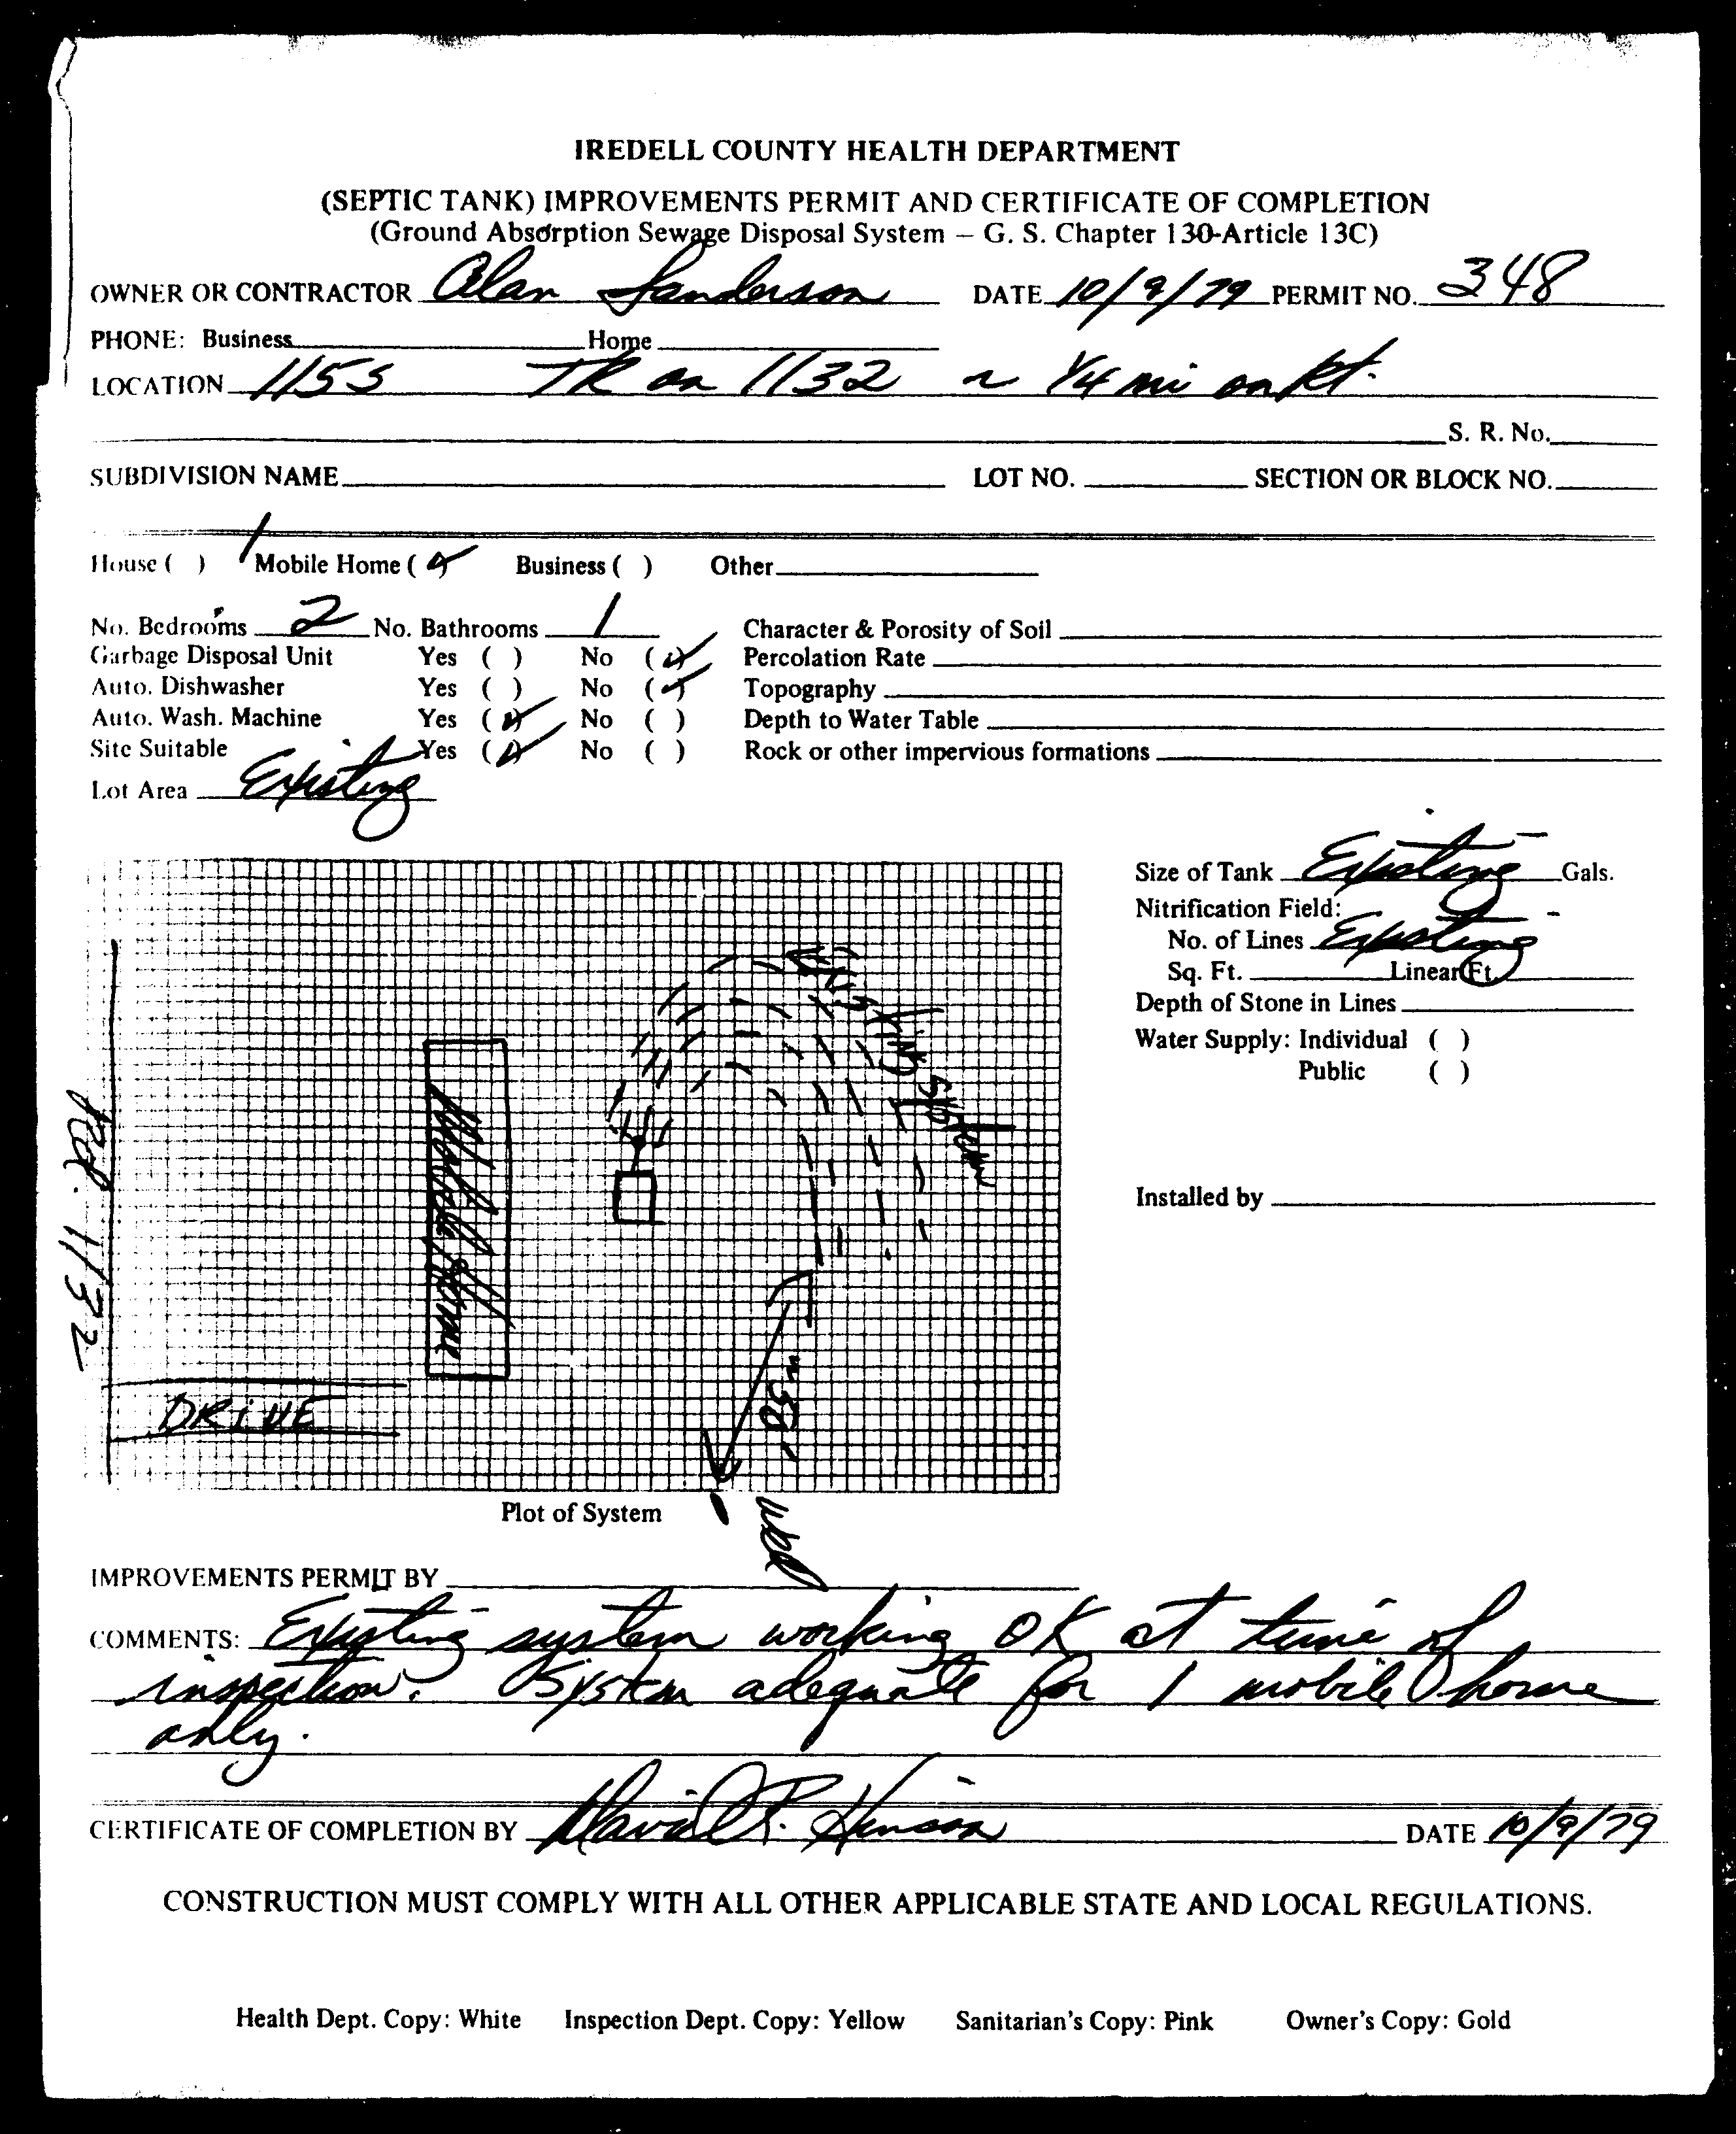 IREDELL COUNTY HEALTH DEPARTMENT
(SEPTIC TANK) IMPROVEMENTS PERMIT AND CERTIFICATE OF COMPLETION
(Ground Absorption Sewage Disposal System – G. S. Chapter 130-Article 13C)
OWNER OR CONTRACTOR Alan Sanderson DATE 10/9/79 PERMIT NO. 348
PHONE: Business Home
LOCATION 115S TR on 1132 ~ 1/4 mi on Rt.
S. R. No.
SUBDIVISION NAME LOT NO. SECTION OR BLOCK NO.
House ( ) 1 Mobile Home (✓) Business ( ) Other
No. Bedrooms 2 No. Bathrooms 1 Character & Porosity of Soil
Garbage Disposal Unit Yes ( ) No (✓) Percolation Rate
Auto. Dishwasher Yes ( ) No (✓) Topography
Auto. Wash. Machine Yes (✓) No ( ) Depth to Water Table
Site Suitable Yes (✓) No ( ) Rock or other impervious formations
Lot Area Existing
Size of Tank Existing Gals.
Nitrification Field:
No. of Lines Existing
Sq. Ft. Linear Ft.
Depth of Stone in Lines
Water Supply: Individual ( )
Public ( )
Installed by
Rd. 1132
Mobile Home
Existing System
DRIVE
~50'
well
Plot of System
IMPROVEMENTS PERMIT BY
COMMENTS: Existing system working OK at time of
inspection. System adequate for 1 mobile home
only.
CERTIFICATE OF COMPLETION BY David R. Hinson DATE 10/9/79
CONSTRUCTION MUST COMPLY WITH ALL OTHER APPLICABLE STATE AND LOCAL REGULATIONS.
Health Dept. Copy: White Inspection Dept. Copy: Yellow Sanitarian's Copy: Pink Owner's Copy: Gold